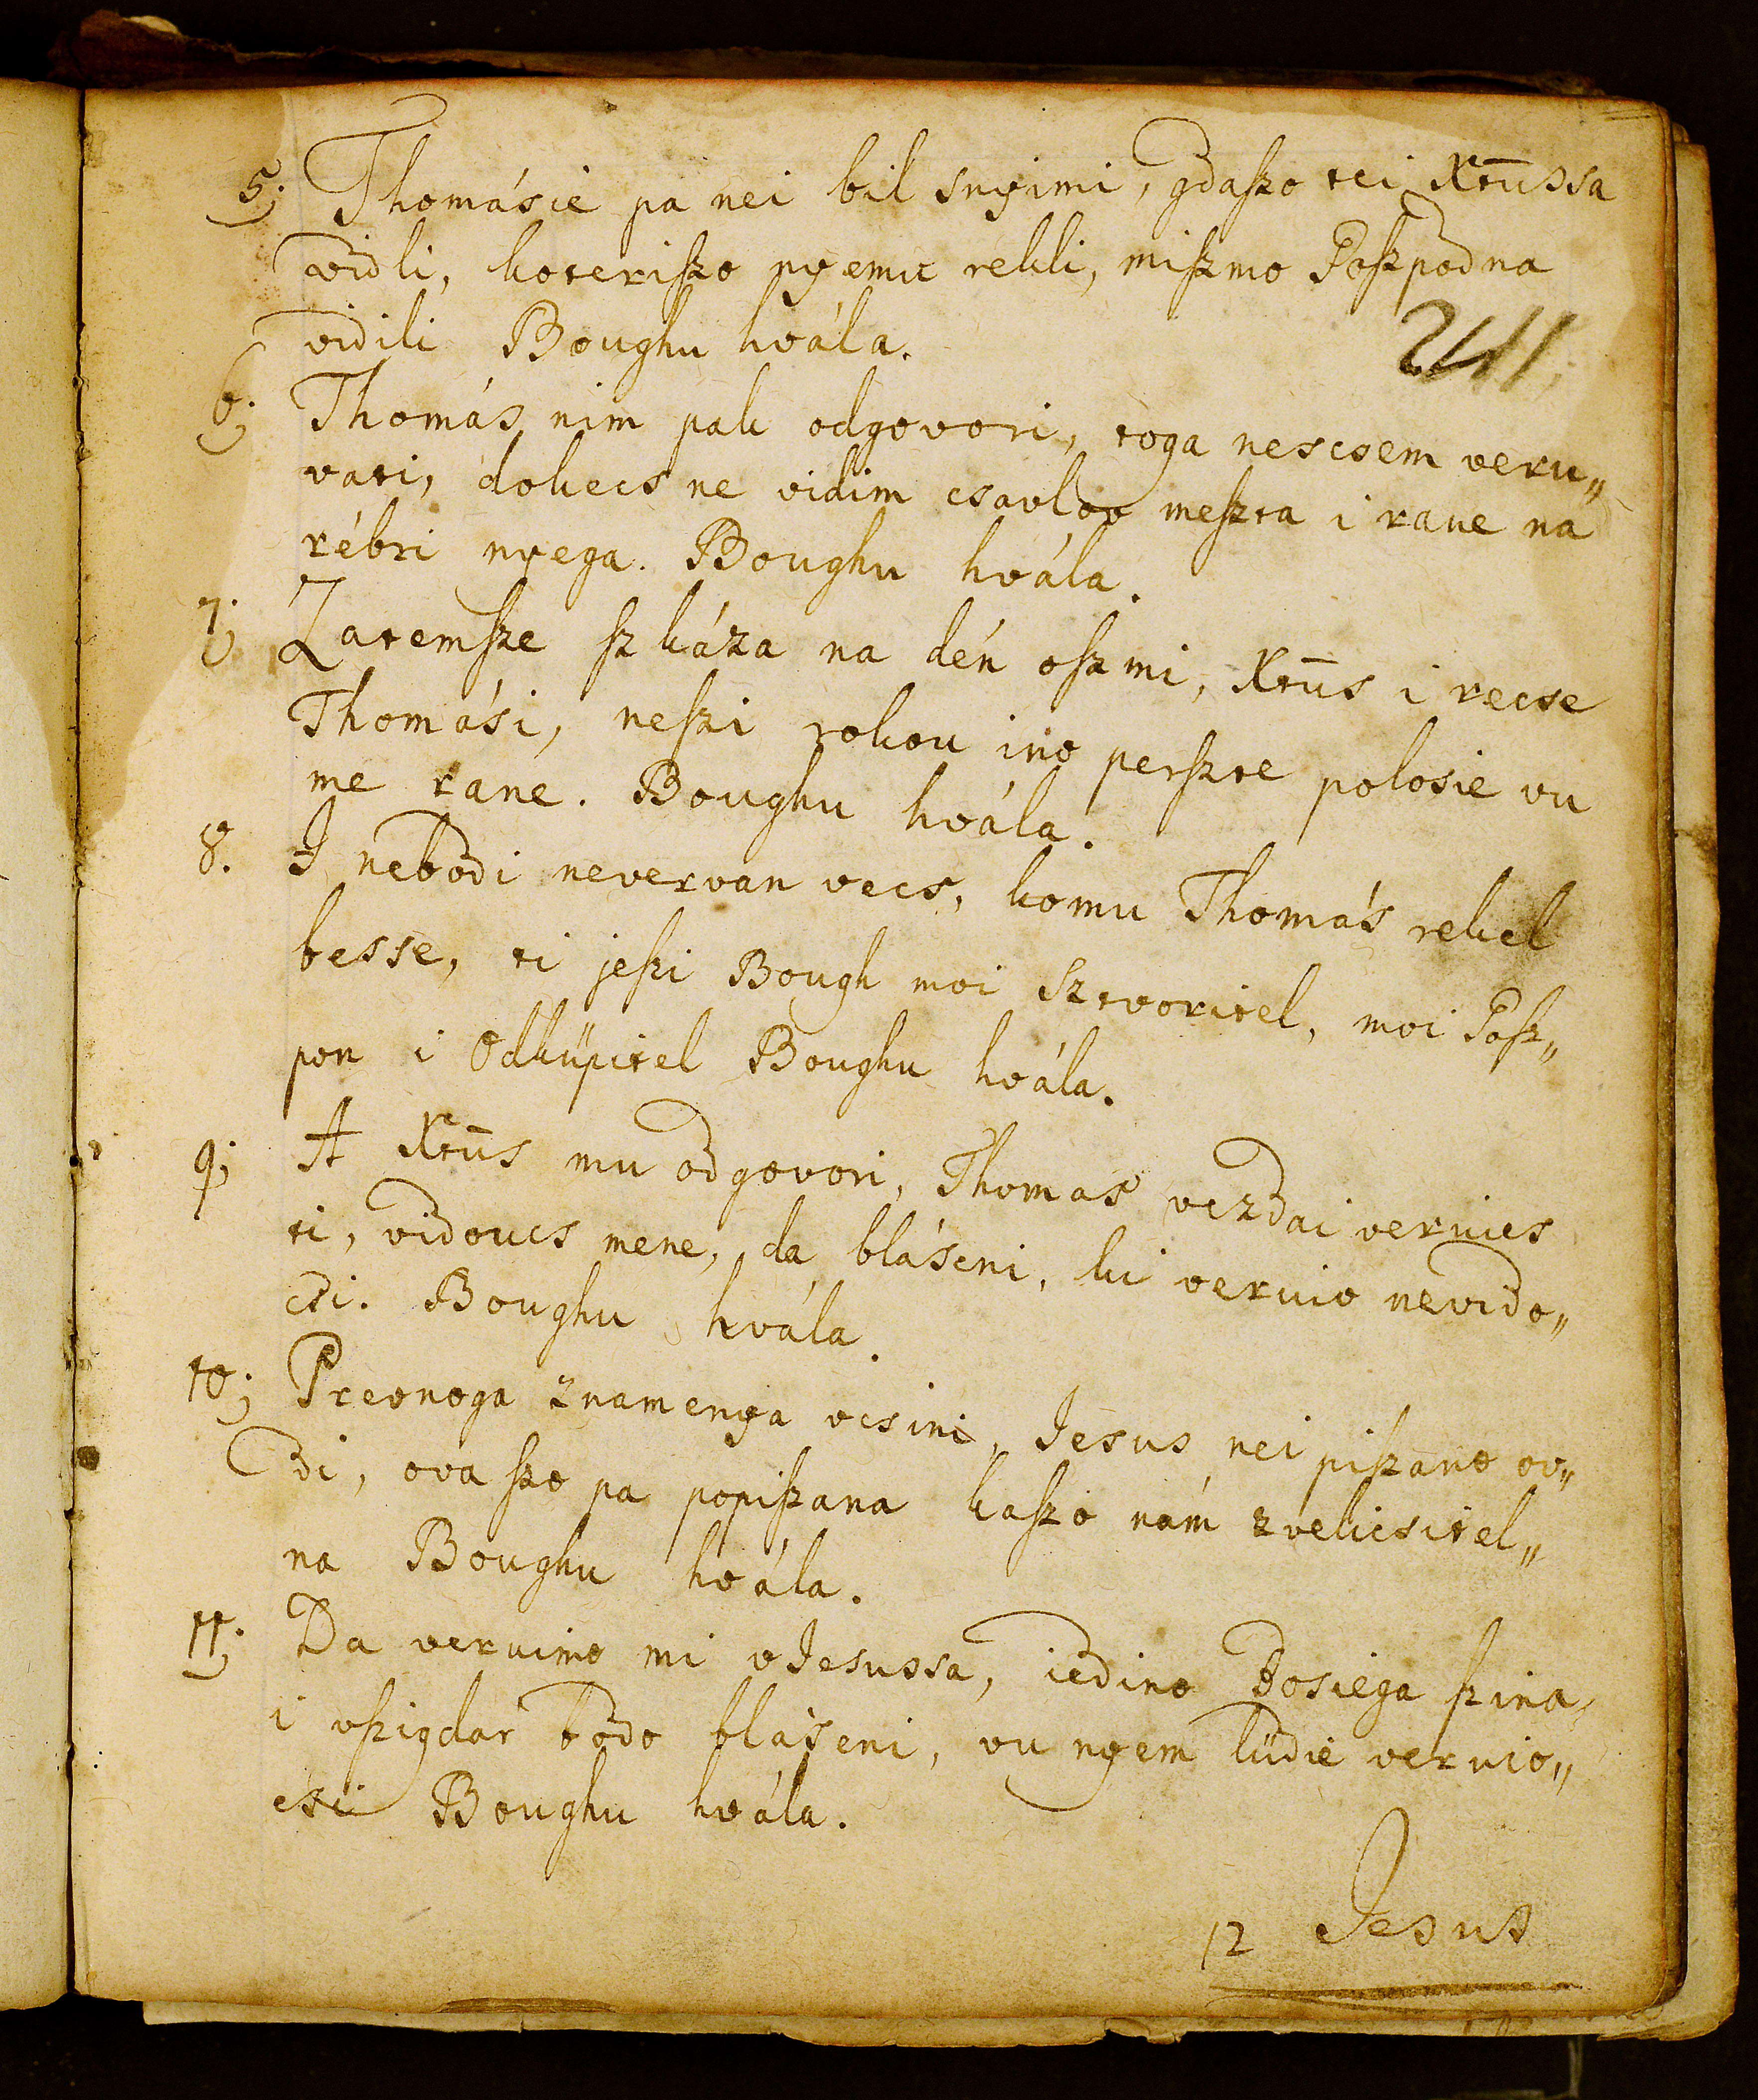 5; Thomásie pa nei bil snyimi, gdaſzo tei Xtūssa
vidli, koteriſzo nyemu rekli, miſzmo Goſzpodna
vidili Boughu hvála.
241
6; Thomás nim pak odgovori, toga nescsem veru„
vati, dokecs ne vidim csavlov meſzta i rane na
rébri nyega. Boughu hvála.
7; Zatemſze ſzkáza na dén oſzmi, Xtūs i recse
Thomási, neſzi rokou ino perſzte polosie vu
me rane. Boughu hvála.
8. I nebodi nevervan vecs, komu Thomás rekel
besse, ti jeſzi Bough moi Sztvoritel, moi Goſz„
pon i Odküpitel Boughu hvála.
9; A Xtūs mu odgovori, Thomas vezdai veruies
ti, vidoucs mene, da bláseni, ki veruio nevido„
csi. Boughu hvála.
10; Prevnoga znamenya vcsini, Jesus nei piſzano ov„
di, ova ſzo pa popiſzana kaſzo nám zvelicsitel„
na Boughu hvála.
11; Da veruimo mi vJesussa, iedino Bosiega ſzina,
i vſzigdar bodo blaseni, vu nyem lüdie veruio„
csi Boughu hvála.
12 Jesus